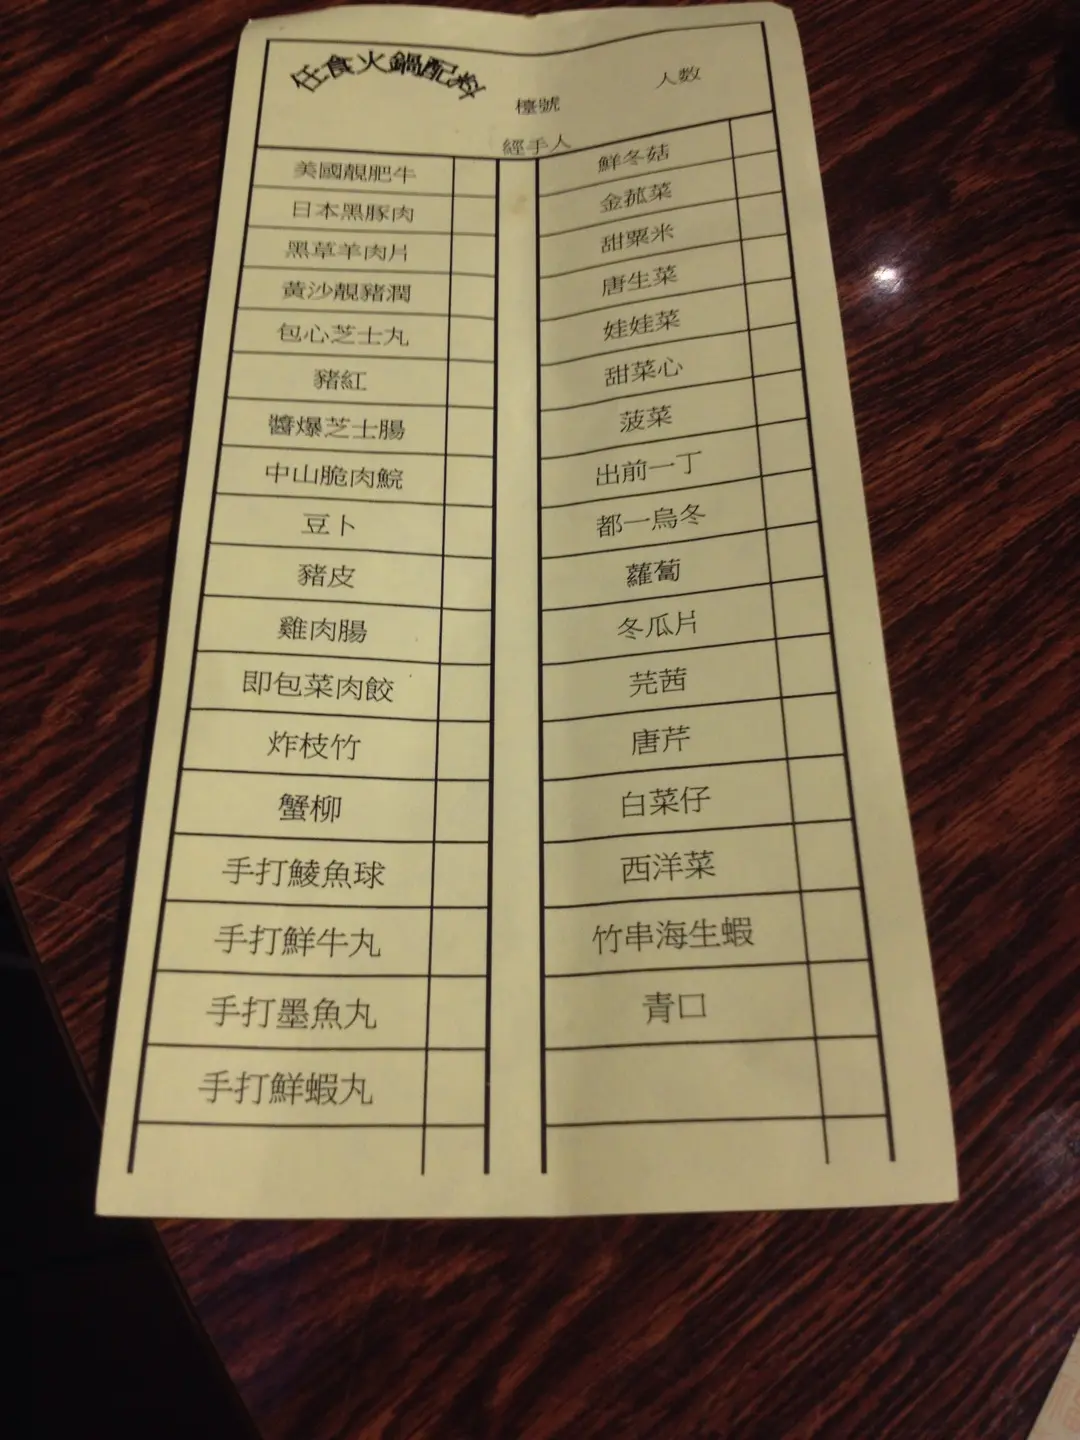 任食火鍋配料
檯號
人数
經手人
美國靚肥牛
日本黑豚肉
黑草羊肉片
黃沙靚豬潤
包心芝士丸
豬紅
醬爆芝士腸
中山脆肉鯇
豆卜
豬皮
雞肉腸
即包菜肉餃
炸枝竹
蟹柳
手打鯪魚球
手打鮮牛丸
手打墨魚丸
手打鮮蝦丸
鮮冬菇
金菰菜
甜粟米
唐生菜
娃娃菜
甜菜心
菠菜
出前一丁
都一烏冬
蘿蔔
冬瓜片
芫茜
唐芹
白菜仔
西洋菜
竹串海生蝦
青口